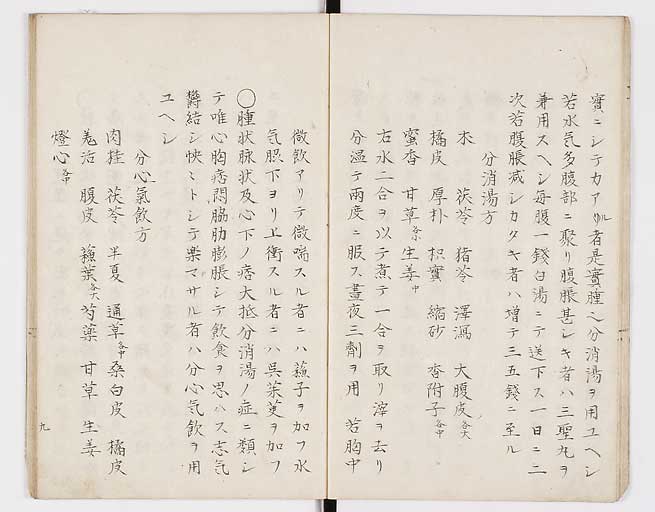 實ニシテカアル者是實腫也分消湯ヲ用ユヘシ
若水気多腹部ニ聚リ腹脹甚シキ者ハ三聖丸ヲ
兼用スヘシ毎服一錢白湯ニテ送下ス一日ニ二
次若腹脹减シカタキ者ハ増テ三五錢ニ至ル
分消湯方
朮 茯苓 猪苓 澤瀉 大腹皮各大
橘皮 厚朴 枳實 縮砂 香附子各中
蜜香 甘草各小 生姜中
右水二合ヲ以テ煮テ一合ヲ取リ滓ヲ去リ
分温テ兩度ニ服ス晝夜三劑ヲ用 若胸中
微飲アリテ微喘スル者ニハ蘓子ヲ加フ水
気臍下ヨリ上衝スル者ニハ呉茱萸ヲ加フ
〇腫状脉状及心下ノ痞大抵分消湯ノ症ニ類シ
テ唯心胸痞悶脇肋膨脹シテ飲食ヲ思ハス志気
欝結シ怏々トシテ樂マサル者ハ分心気飲ヲ用
ユヘシ
分心氣飲方
肉桂 茯苓 半夏 通草各中 桑白皮 橘皮
羗活 腹皮 蘓葉各大 芍薬 甘草 生姜
燈心各中
九